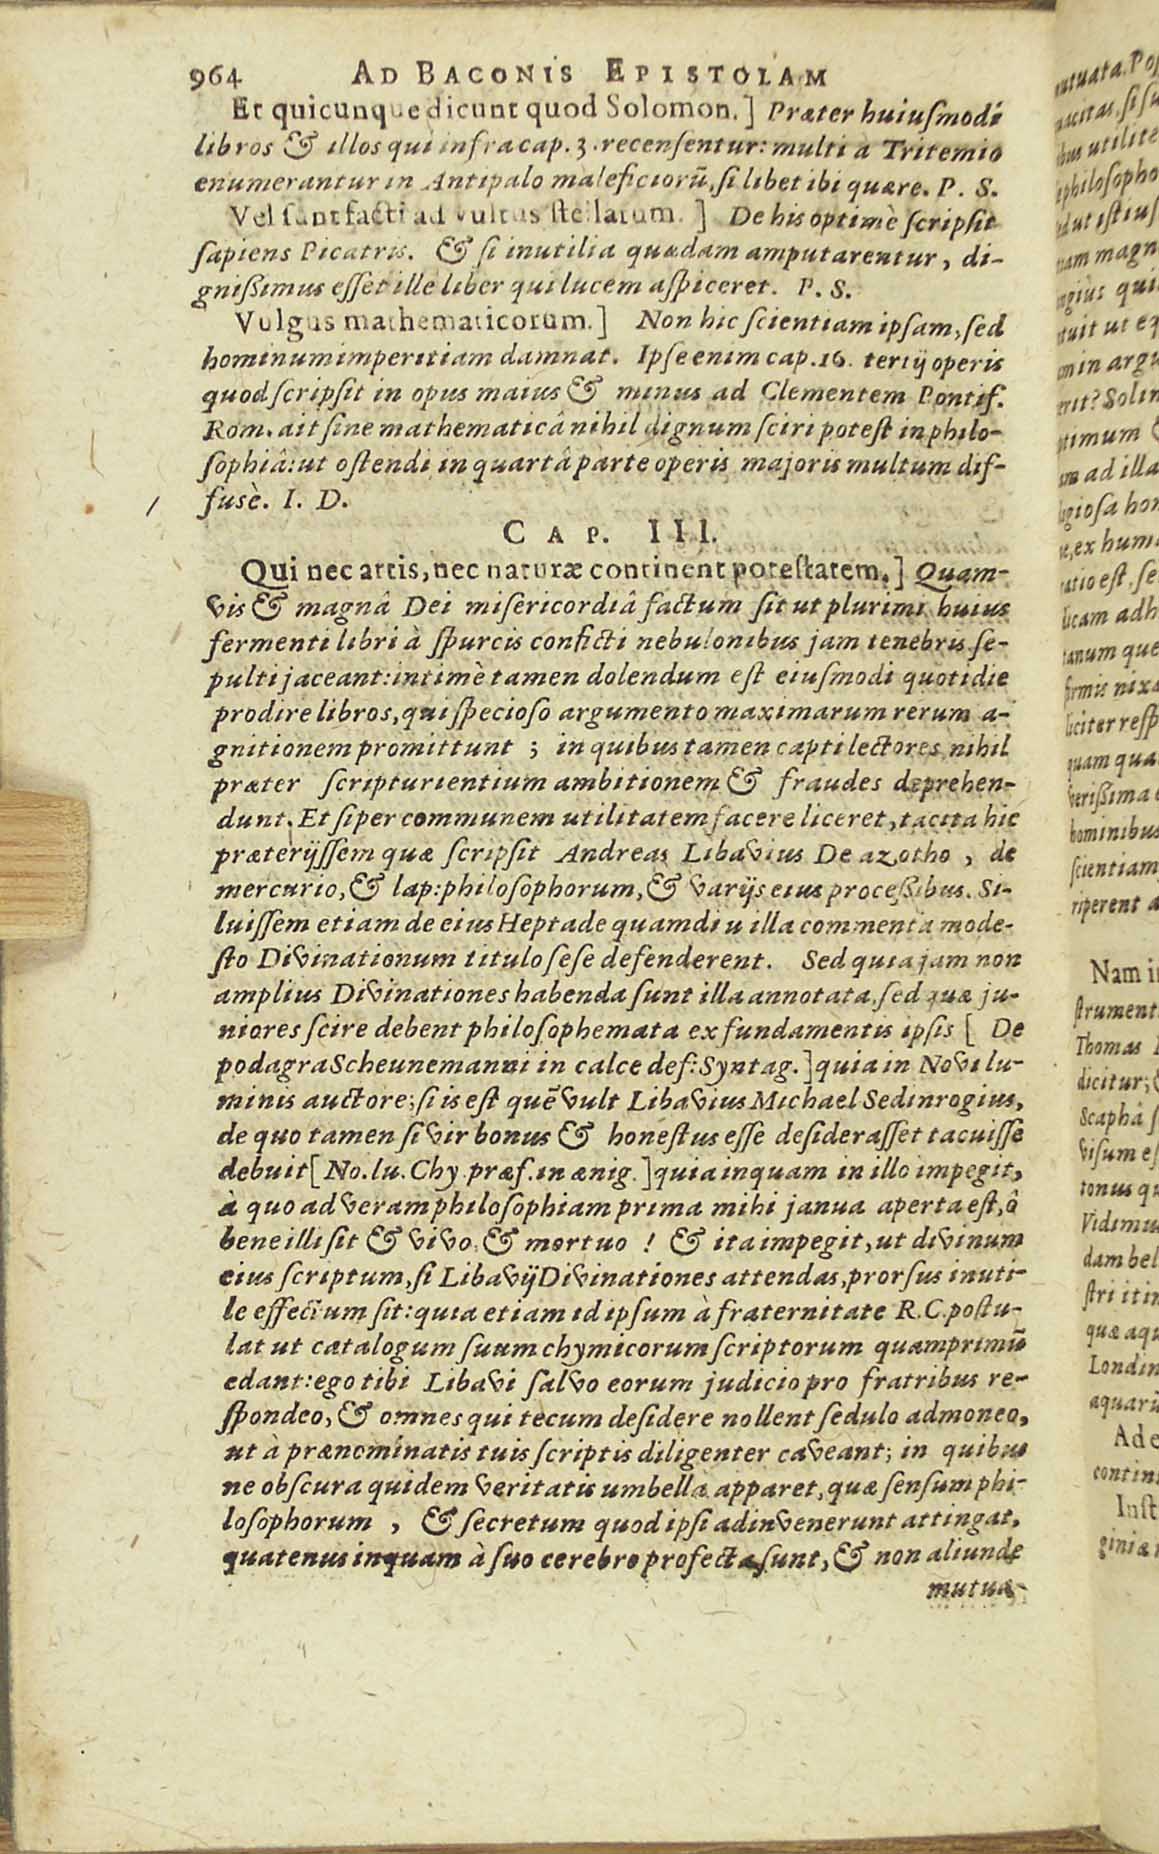 964 AD BACONIS EPISTOLAM
Et quicunque dicunt quod Solomon.] Præter huiuſmodi
libros & illos qui infra cap. 3. recenſentur: multi à Tritemio
enumerantur in Antipalo maleficiorũ, ſi libet ibi quære. P. S.
Vel ſunt facti ad vultus ſtellarum.] De his optimè ſcripſit
ſapiens Picatris. & ſi inutilia quædam amputarentur, di-
gniſſimus eſſet ille liber qui lucem aſpiceret. P. S.
Vulgus mathematicorum.] Non hic ſcientiam ipſam, ſed
hominum imperitiam damnat. Ipſe enim cap. 16. tertij operis
quod ſcripſit in opus maius & minus ad Clementem Pontif.
Rom. ait ſine mathematicâ nihil dignum ſciri poteſt in philo-
ſophiâ: ut oſtendi in quartâ parte operis majoris multum dif-
fusè. I. D.
CAP. III.
Qui nec artis, nec naturæ continent poteſtatem.] Quam-
vis & magnâ Dei miſericordiâ factum ſit ut plurimi huius
fermenti libri à ſpurcis conficti nebulonibus jam tenebris ſe-
pulti jaceant: intimè tamen dolendum eſt eiuſmodi quotidie
prodire libros, qui ſpecioſo argumento maximarum rerum a-
gnitionem promittunt ; in quibus tamen capti lectores nihil
præter ſcripturientium ambitionem & fraudes deprehen-
dunt. Et ſi per communem utilitatem facere liceret, tacita hic
præterijſſem quæ ſcripſit Andreas Libavius De azotho, de
mercurio, & lap: philoſophorum, & varijs eius proceſſibus. Si-
luiſſem etiam de eius Heptade quamdiu illa commenta mode-
ſto Divinationum titulo ſeſe defenderent. Sed quia jam non
amplius Divinationes habenda ſunt illa annotata, ſed quæ ju-
niores ſcire debent philoſophemata ex fundamentis ipſis [ De
podagra Scheunemanni in calce def: Syntag.] quia in Novi lu-
minis auctore; ſi is eſt quẽ vult Libavius Michael Sedinrogius,
de quo tamen ſi vir bonus & honeſtus eſſe deſideraſſet tacuiſſe
debuit [ No. lu. Chy. præf. in ænig.] quia inquam in illo impegit,
à quo ad veram philoſophiam prima mihi janua aperta eſt, ô
bene illi ſit & vivo, & mortuo ! & ita impegit, ut divinum
eius ſcriptum, ſi Libavij Divinationes attendas, prorſus inuti-
le effectum ſit: quia etiam id ipſum à fraternitate R.C. poſtu-
lat ut catalogum ſuum chymicorum ſcriptorum quamprimũ
edant: ego tibi Libavi ſalvo eorum judicio pro fratribus re-
ſpondeo, & omnes qui tecum deſidere nollent ſedulo admoneo,
ut à prænominatis tuis ſcriptis diligenter caveant; in quibus
ne obſcura quidem veritatis umbella apparet, quæ ſenſum phi-
loſophorum, & ſecretum quod ipſi adinvenerunt attingat,
quatenus inquam à ſuo cerebro profecta ſunt, & non aliunde
mutua-